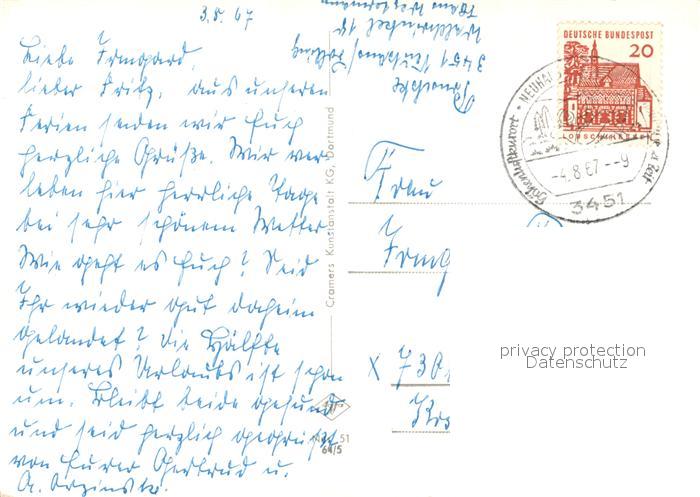 3.8.67
Liebe Irmgard,
lieber Fritz, aus unseren
Ferien senden wir Euch
herzliche Grüße. Wir ver-
leben hier herrliche Tage
bei sehr schönem Wetter.
Wie geht es Euch? Seid
Ihr wieder gut daheim
gelandet? Die Hälfte
unseres Urlaubs ist schon
um. Bleibt beide gesund
und seid herzlich gegrüßt
von Eurer Gertrud u.
3451
Cramers Kunstanstalt KG, Dortmund
51
64/5
DEUTSCHE BUNDESPOST
20
LORSCH/HESSEN
Höhenluftkurort · NEUHAU
-4.8.67--9
3451
Frau
Irmg
X 730
privacy protection
Datenschutz